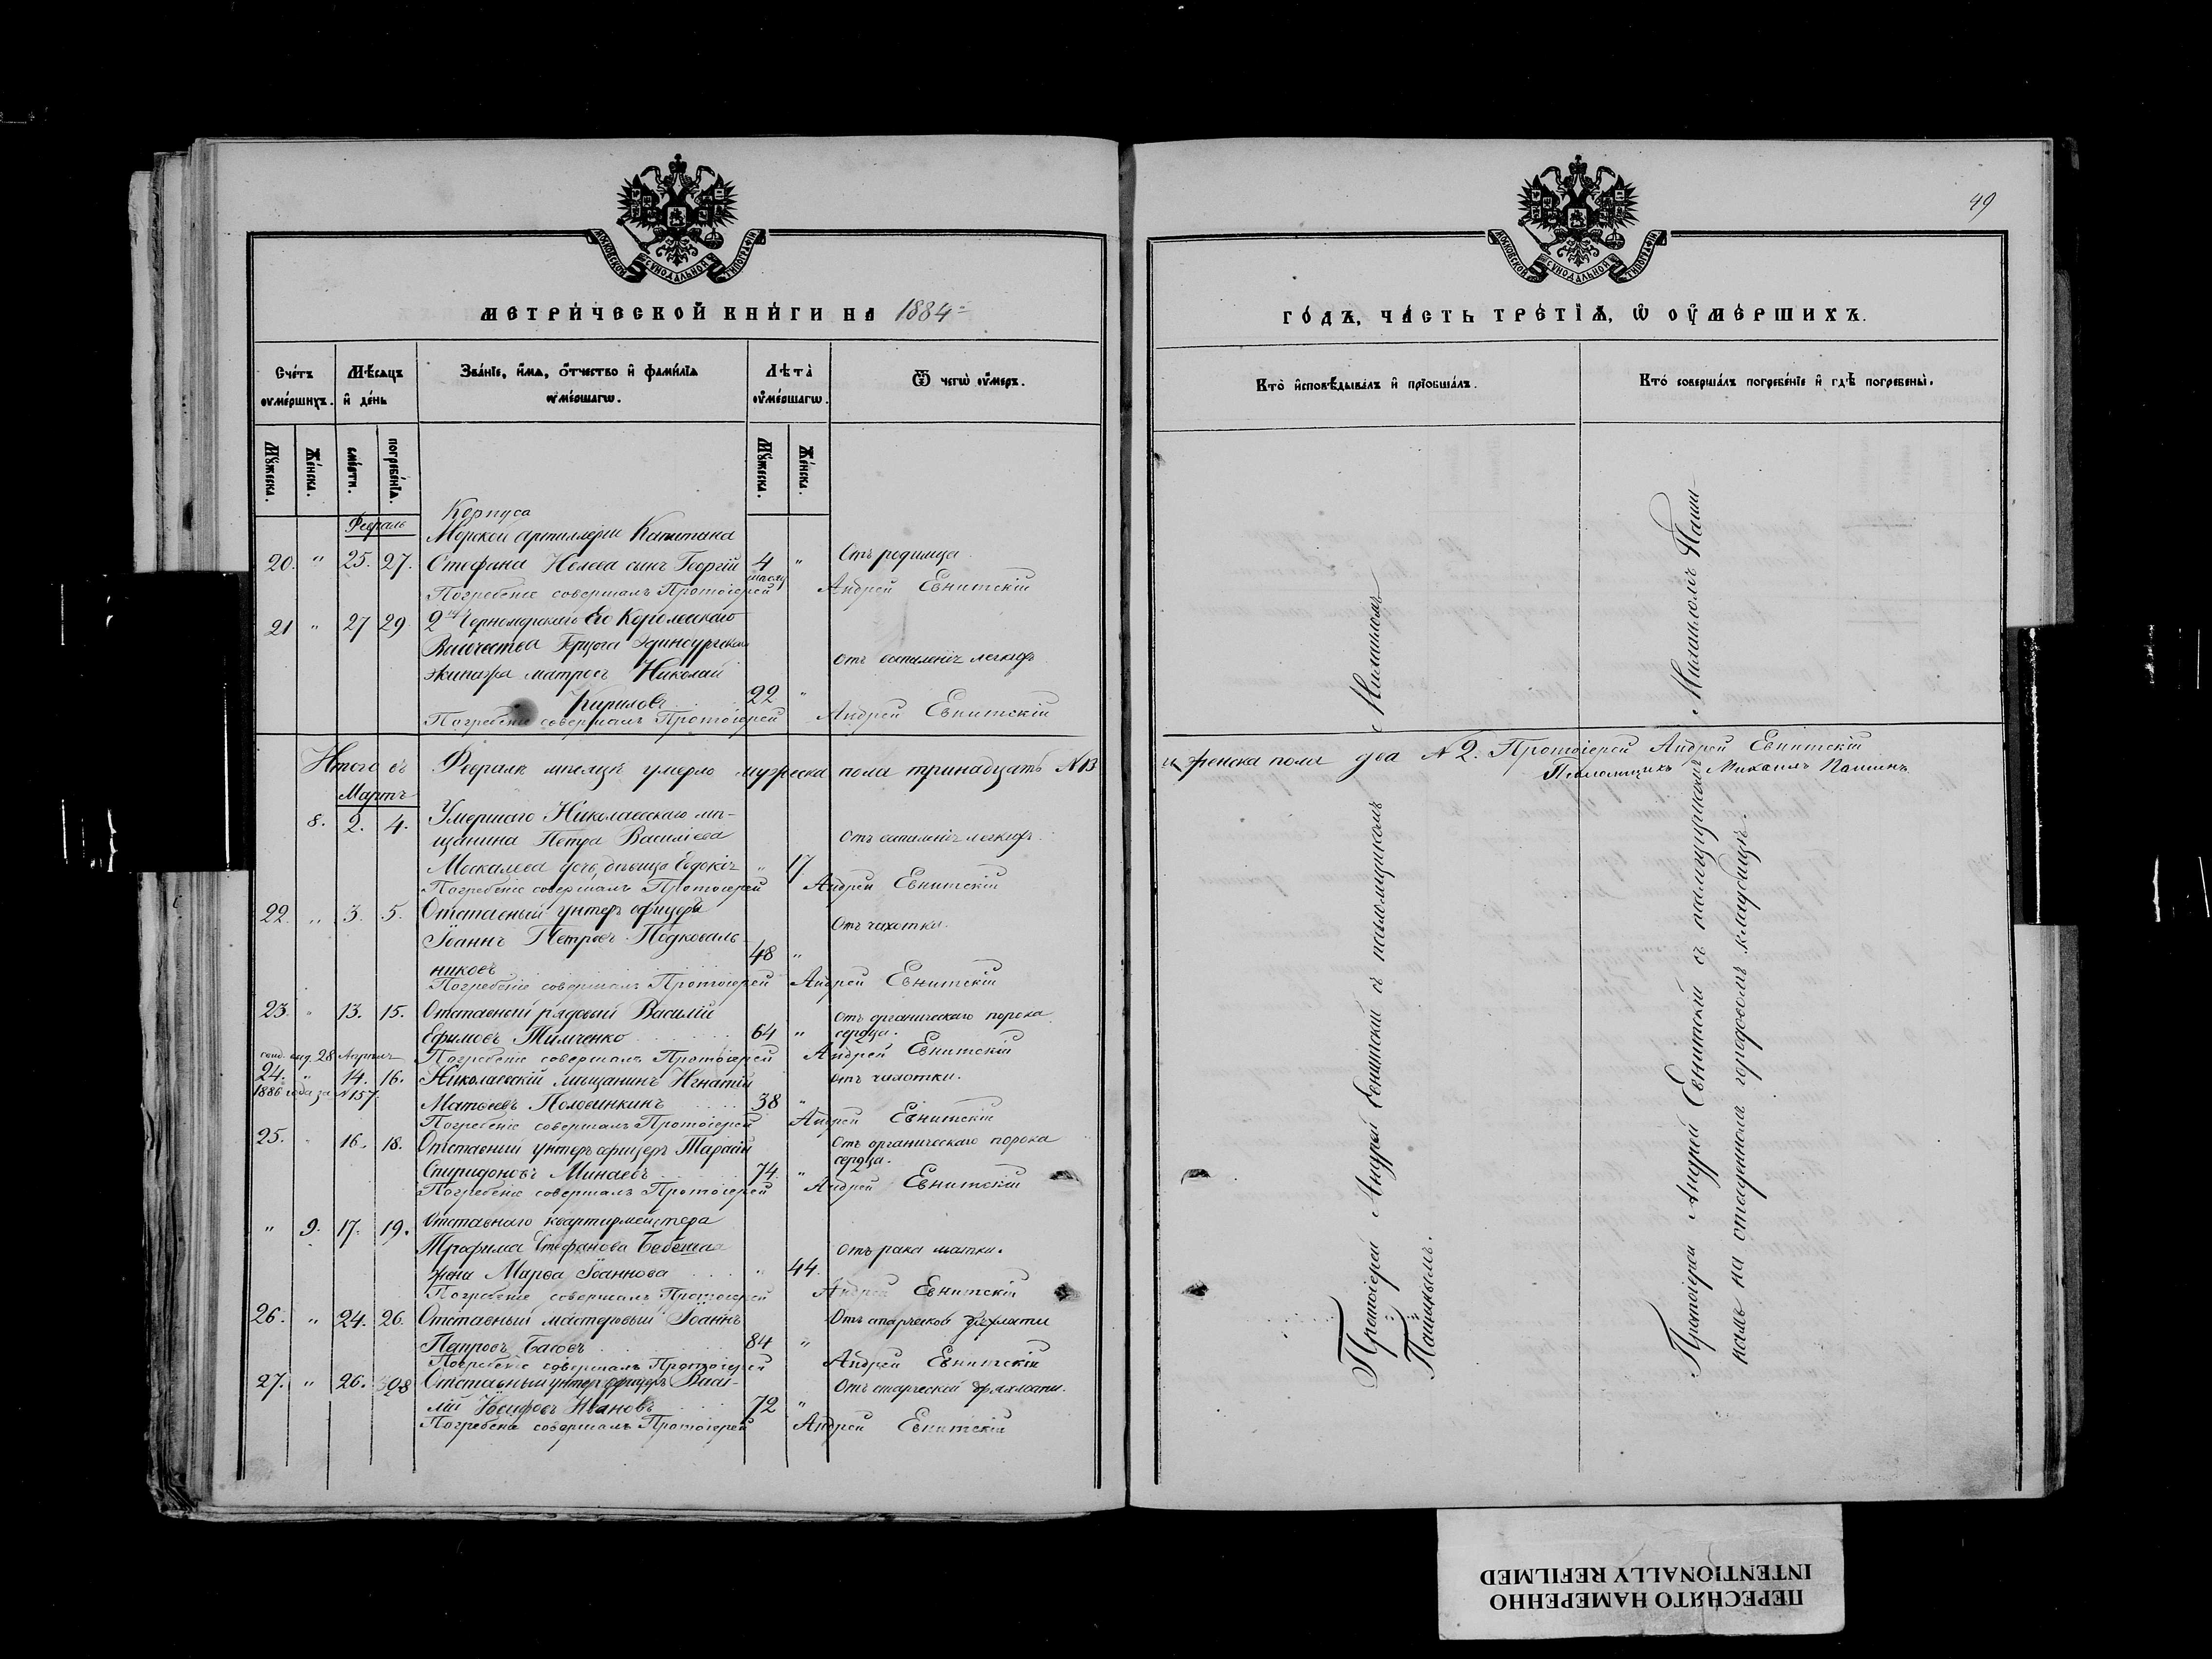 МОСКОВСКОЙ СѴНОДАЛЬНОЙ ТИПОГРАФІИ
МЕТРИЧЕСКОЙ КНИГИ НА 1884
Счетъ умершихъ.
Мѣсяцъ и день
Званіе, имя, отчество и фамилія умершагѡ.
Лѣта умершагѡ.
Ѿ чегѡ умеръ.
Мужеска.
Женска.
смерти.
погребенія.
Мужеска.
Женска.
Февраль
Корпуса
Морской артиллеріи Капитана
20. " 25. 27. Стефана Келева сынъ Георгій 4 " Отъ родимца
Погребеніе совершалъ Протоіерей Андрей Евнитскій
21 " 27 29 2го Черноморскаго Его Королевскаго
Высочества Герцога Эдинбургскаго
экипажа матросъ Николай Отъ воспаленія легкихъ
Кириловъ 22 "
Погребеніе совершалъ Протоіерей Андрей Евнитскій
Итого въ Февралѣ мѣсяцѣ умерло мужеска пола тринадцать N13
Мартъ
8. 2. 4. Умершаго Николаевскаго мѣ-
щанина Петра Васильева Отъ воспаленія легкихъ
Москалева дочь, дѣвица Евдокія " 17
Погребеніе совершалъ Протоіерей Андрей Евнитскій
22. " 3. 5. Отставный унтеръ офицеръ
Іоаннъ Петровъ Подковаль- Отъ чахотки.
никовъ 48 "
Погребеніе совершалъ Протоіерей Андрей Евнитскій
23. " 13. 15. Отставный рядовый Василій Отъ органическаго порока
Ефимовъ Тимченко 64 " сердца.
28 Апрѣля Погребеніе совершалъ Протоіерей Андрей Евнитскій
24. " 14. 16. Николаевскій мѣщанинъ Игнатій отъ чахотки.
1886 года за N157. Матвѣевъ Половинкинъ 38 "
Погребеніе совершалъ Протоіерей Андрей Евнитскій
25. " 16. 18. Отставный унтеръ офицеръ Тарасій Отъ органическаго порока
Спиридоновъ Минаевъ 74. " сердца.
Погребеніе совершалъ Протоіерей Андрей Евнитскій
" 9. 17. 19. Отставнаго квартирмейстера
Трофима Стефанова Отъ рака матки.
жена Марѳа Іоаннова " 44.
Погребеніе совершалъ Протоіерей Андрей Евнитскій
26. " 24. 26. Отставный мастеровый Іоаннъ Отъ старческой дряхлости
Петровъ 84 "
Погребеніе совершалъ Протоіерей Андрей Евнитскій
27. " 26. 28 Отставный унтеръ офицеръ Васи- Отъ старческой дряхлости.
лій Іосифовъ Ивановъ 72 "
Погребеніе совершалъ Протоіерей Андрей Евнитскій
49
МОСКОВСКОЙ СѴНОДАЛЬНОЙ ТИПОГРАФІИ
ГОДЪ, ЧАСТЬ ТРЕТІѦ, Ѡ ОУМЕРШИХЪ.
Кто исповѣдывалъ и пріобщалъ.
Кто совершалъ погребеніе и гдѣ погребены.
и женска пола два N2. Протоіерей Андрей Евнитскій
Псаломщикъ Михаилъ
Протоіерей Андрей Евнитскій съ псаломщикомъ Михаиломъ
Протоіерей Андрей Евнитскій съ псаломщикомъ Михаиломъ
на отведенномъ городовомъ кладбищѣ.
ПЕРЕСНЯТО НАМЕРЕННО
INTENTIONALLY REFILMED